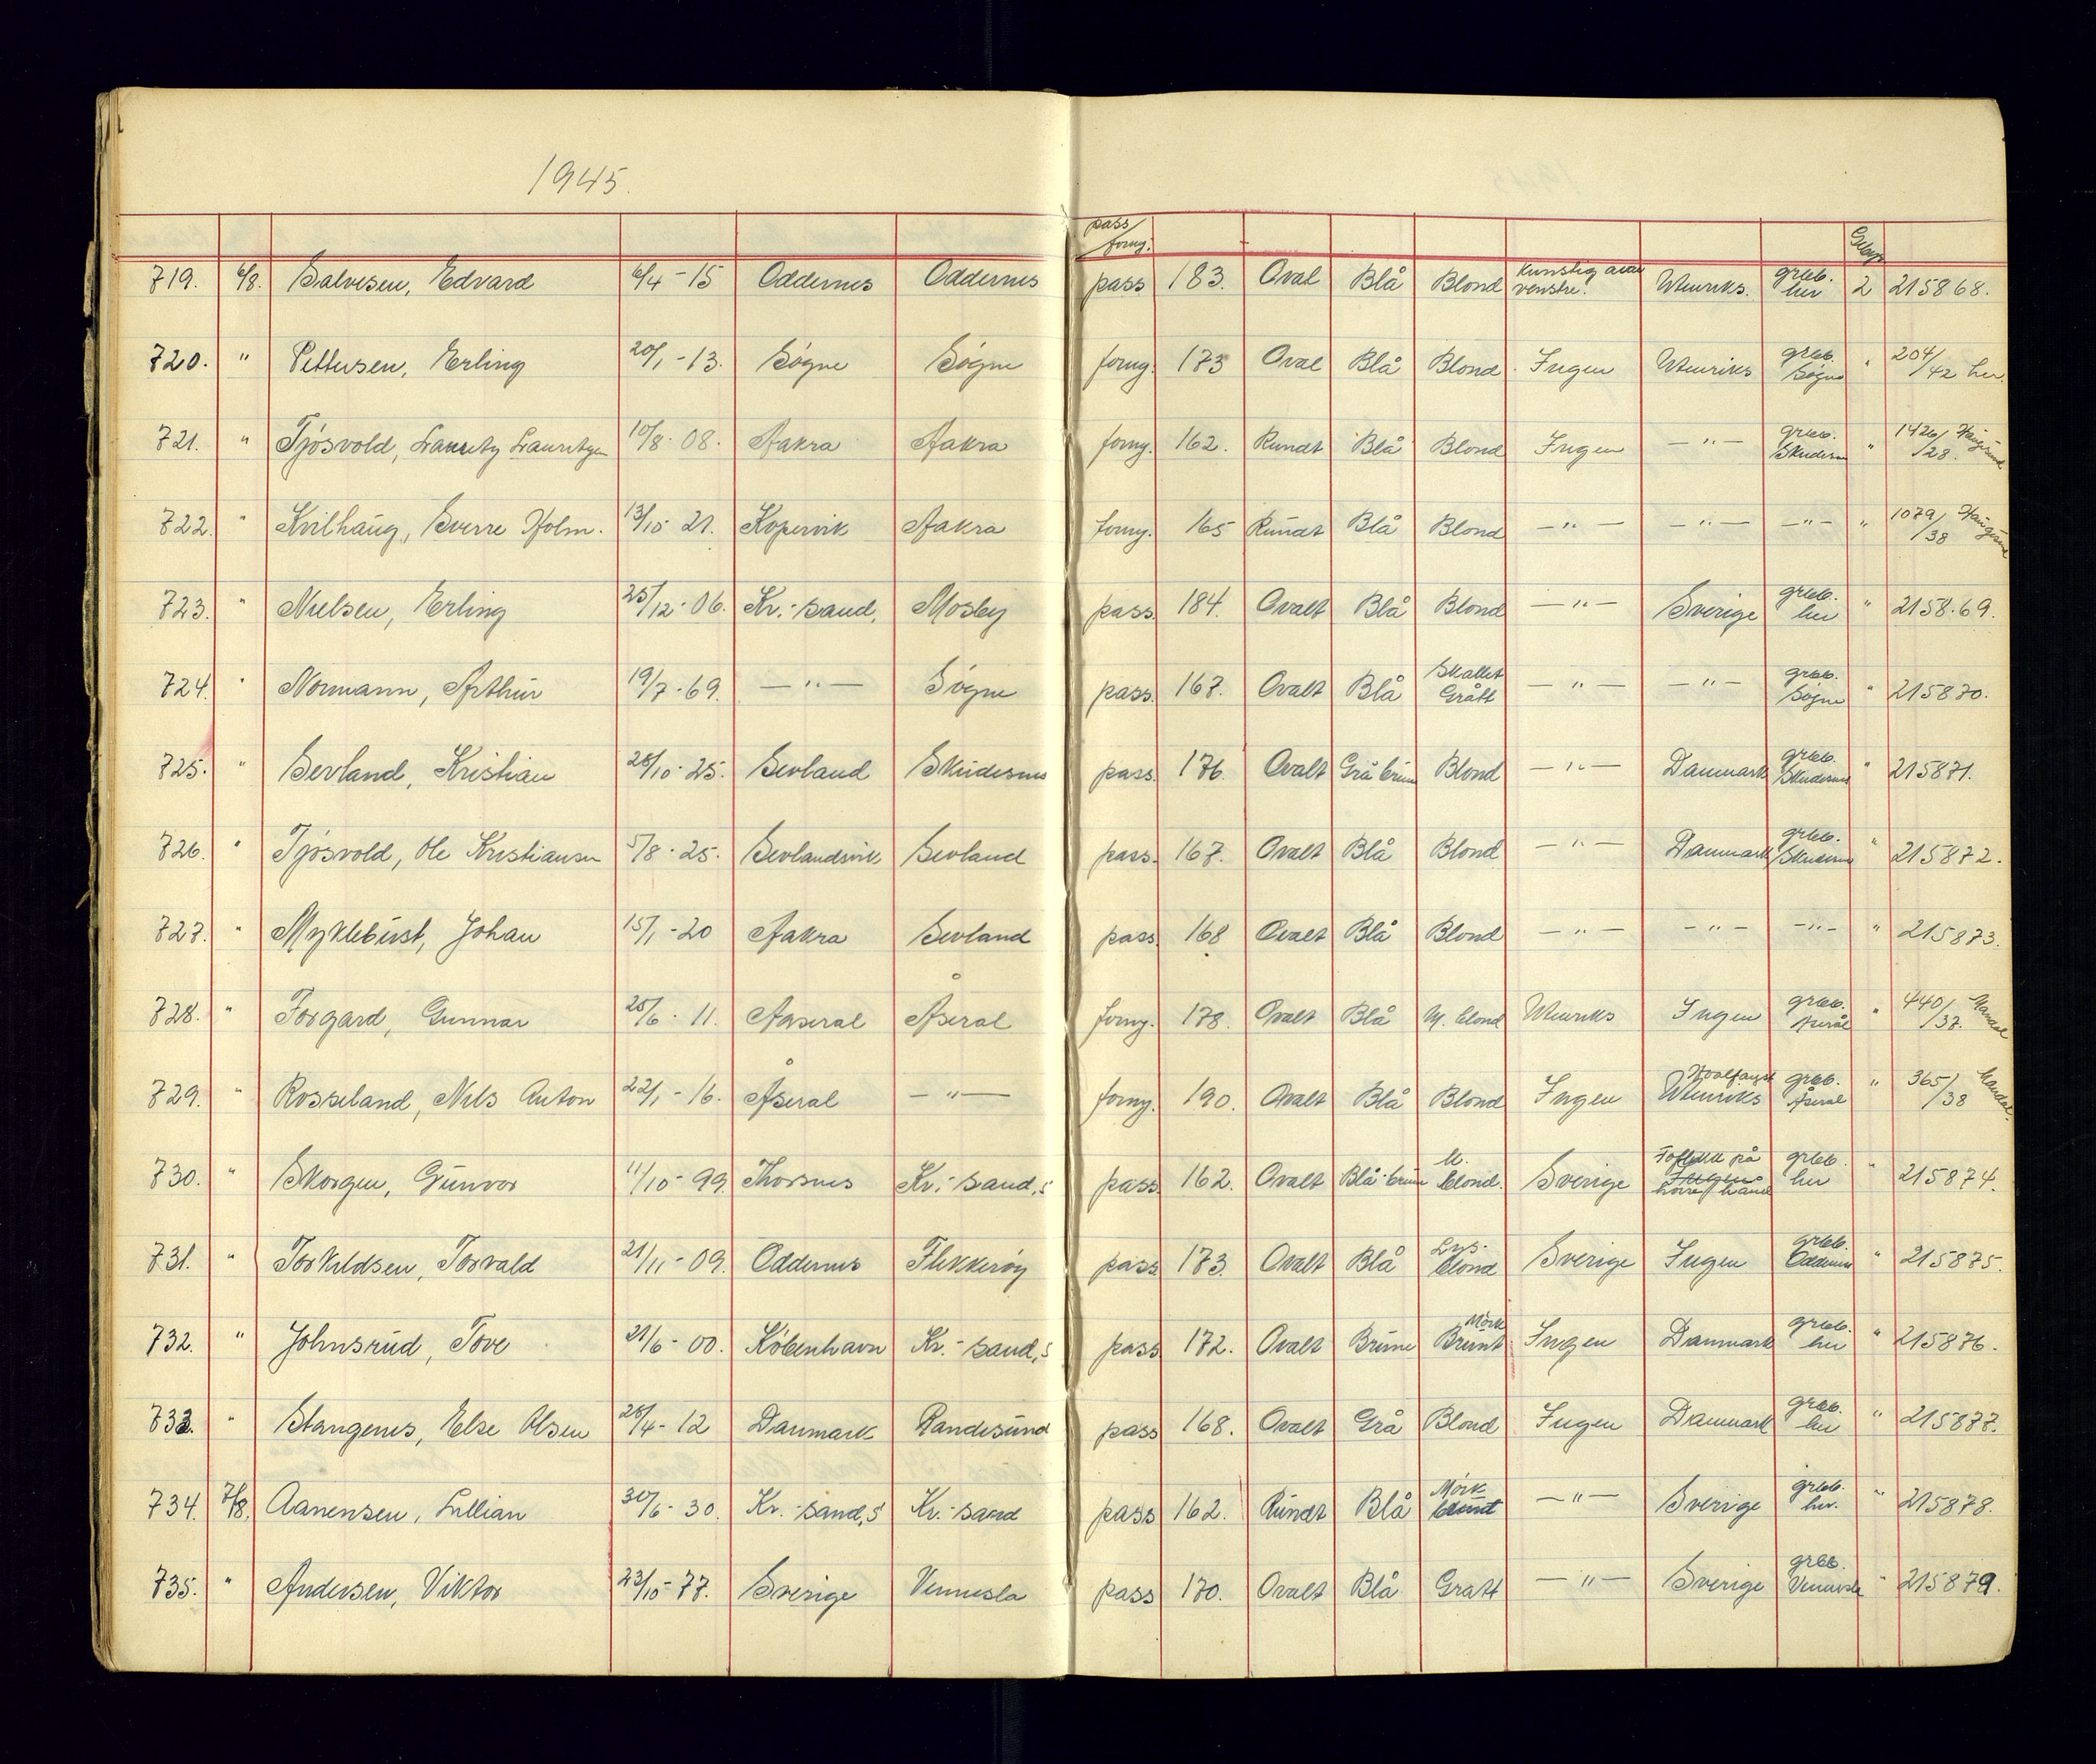 1945.
pass/forny. Gebyr
719. 6/8. Salvesen, Edvard 6/4-15 Oddernes Oddernes pass 183. Oval Blå Blond Kunstig arm venstre. Utenriks. greb. her 2 215868.
720. " Pettersen, Erling 20/1-13. Søgne Søgne forny. 173 Oval Blå Blond. Ingen Utenriks greb. Søgne " 204/42 her.
721. " Tjøsvold, Lauritz Lauritzen 10/8-08. Aakra Aakra forny. 162. Rundt Blå Blond Ingen -"- greb. Skudesn " 1426/28. Haugesund
722. " Kvilhaug, Sverre Holm. 13/10 21. Kopervik Aakra forny. 165 Rundt Blå Blond -"- -"- -"- " 1079/38 Haugesund
723. " Nielsen, Erling 25/12-06. Kr.-sand, Mosby pass. 184. Ovalt Blå Blond -"- Sverige greb. her " 215869.
724. " Normann, Arthur 19/7-69. -"- Søgne pass. 167. Ovalt Blå Skallet Grått -"- -"- greb. Søgne " 215870.
725. " Sevland, Kristian 28/10-25. Sevland Skudesnes pass. 176. Ovalt Grå brun Blond -"- Danmark greb. Skudesnes " 215871.
726. " Tjøsvold, Ole Kristiansen 5/8-25. Sevlandsvik Sevland pass. 167. Ovalt Blå Blond -"- Danmark greb. Skudesnes " 215872.
727. " Myklebust, Johan 15/1-20 Aakra Sevland pass. 168 Ovalt Blå Blond -"- -"- -"- " 215873.
728. " Forgard, Gunnar 25/6-11. Aaseral Åseral forny. 178. Ovalt Blå M. blond Utenriks Ingen greb. Åserål " 440/37. Mandal
729. " Rosseland, Nils Anton 22/1-16. Åseral -"- forny. 190. Ovalt Blå Blond Ingen Hvalfangst Utenriks greb. Åseral " 365/38 Mandal.
730. " Skorgen, Gunvor 11/10-99. Thorsnes Kr.-sand,S pass. 162. Ovalt Blå-brun M. blond. Sverige Føflekk på Ingen høire hånd greb. her " 215874.
731. " Torkildsen, Torvald 21/11-09. Oddernes Flekkerøy pass. 173. Ovalt Blå Lys-blond Sverige Ingen greb. Oddernes " 215875.
732. " Johnsrud, Tove 21/6-00. København Kr.-sand,S pass 172. Ovalt Brune Mörk Brunt Ingen Danmark greb. her " 215876.
733. " Stangenes, Else Olsen 28/4-12 Danmark Randesund pass 168. Ovalt Grå Blond Ingen Danmark greb. her " 215877.
734. 7/8. Aanensen, Lillian 30/6-30. Kr.-sand,S Kr.-sand pass 162. Rundt Blå Mörk -"- Sverige greb. her. " 215878.
735. " Andersen, Viktor 23/10-77. Sverige Vennesla pass 170. Ovalt Blå Grått -"- Sverige greb. Vennesla " 215879.